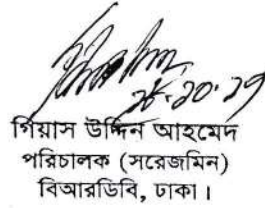 গিয়াস উদ্দিন আহমেদ
পরিচালক (সরেজমিন)
বিআরডিবি, ঢাকা।